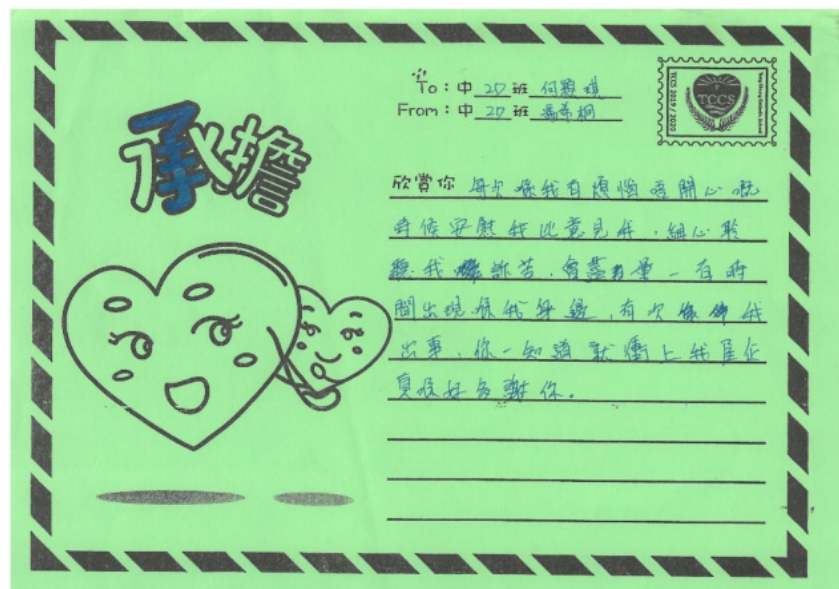 承擔
To：中 2D 班 何穎琪
From：中 2D 班 馮希桐
TCCS
TCCS 2019 - 2020
欣賞你 每次喺我有煩惱唔開心嘅
時候安慰我比意見我，細心聆
聽我訴苦，會盡力量一有時
間出現喺我身邊，有次我
出事，你一知道就衝上我屋企
真係好多謝你。